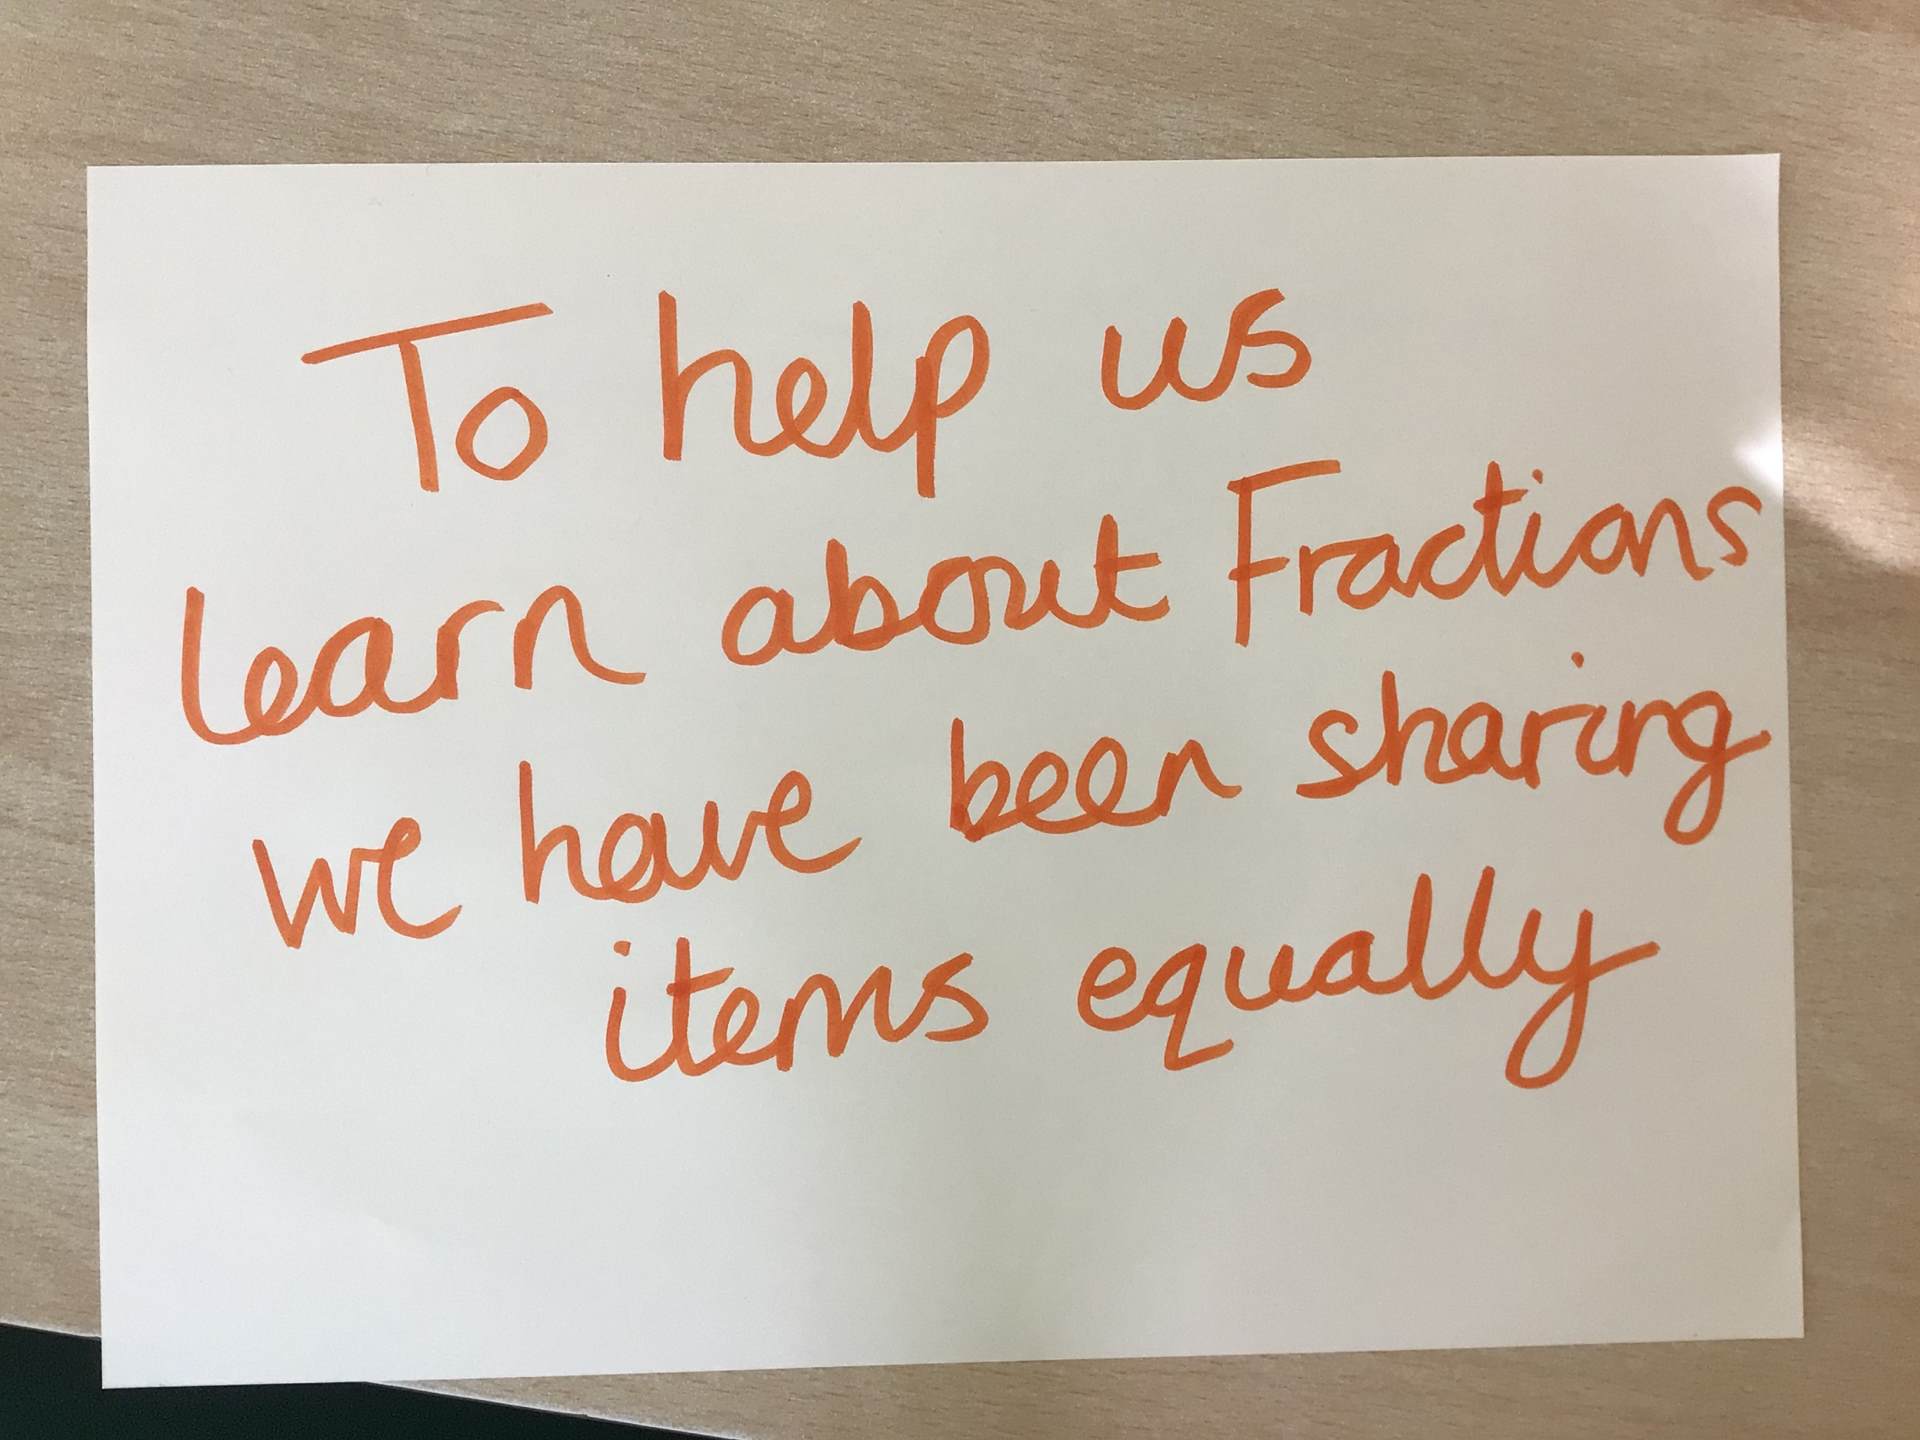 To help us
learn about Fractions
we have been sharing
items equally